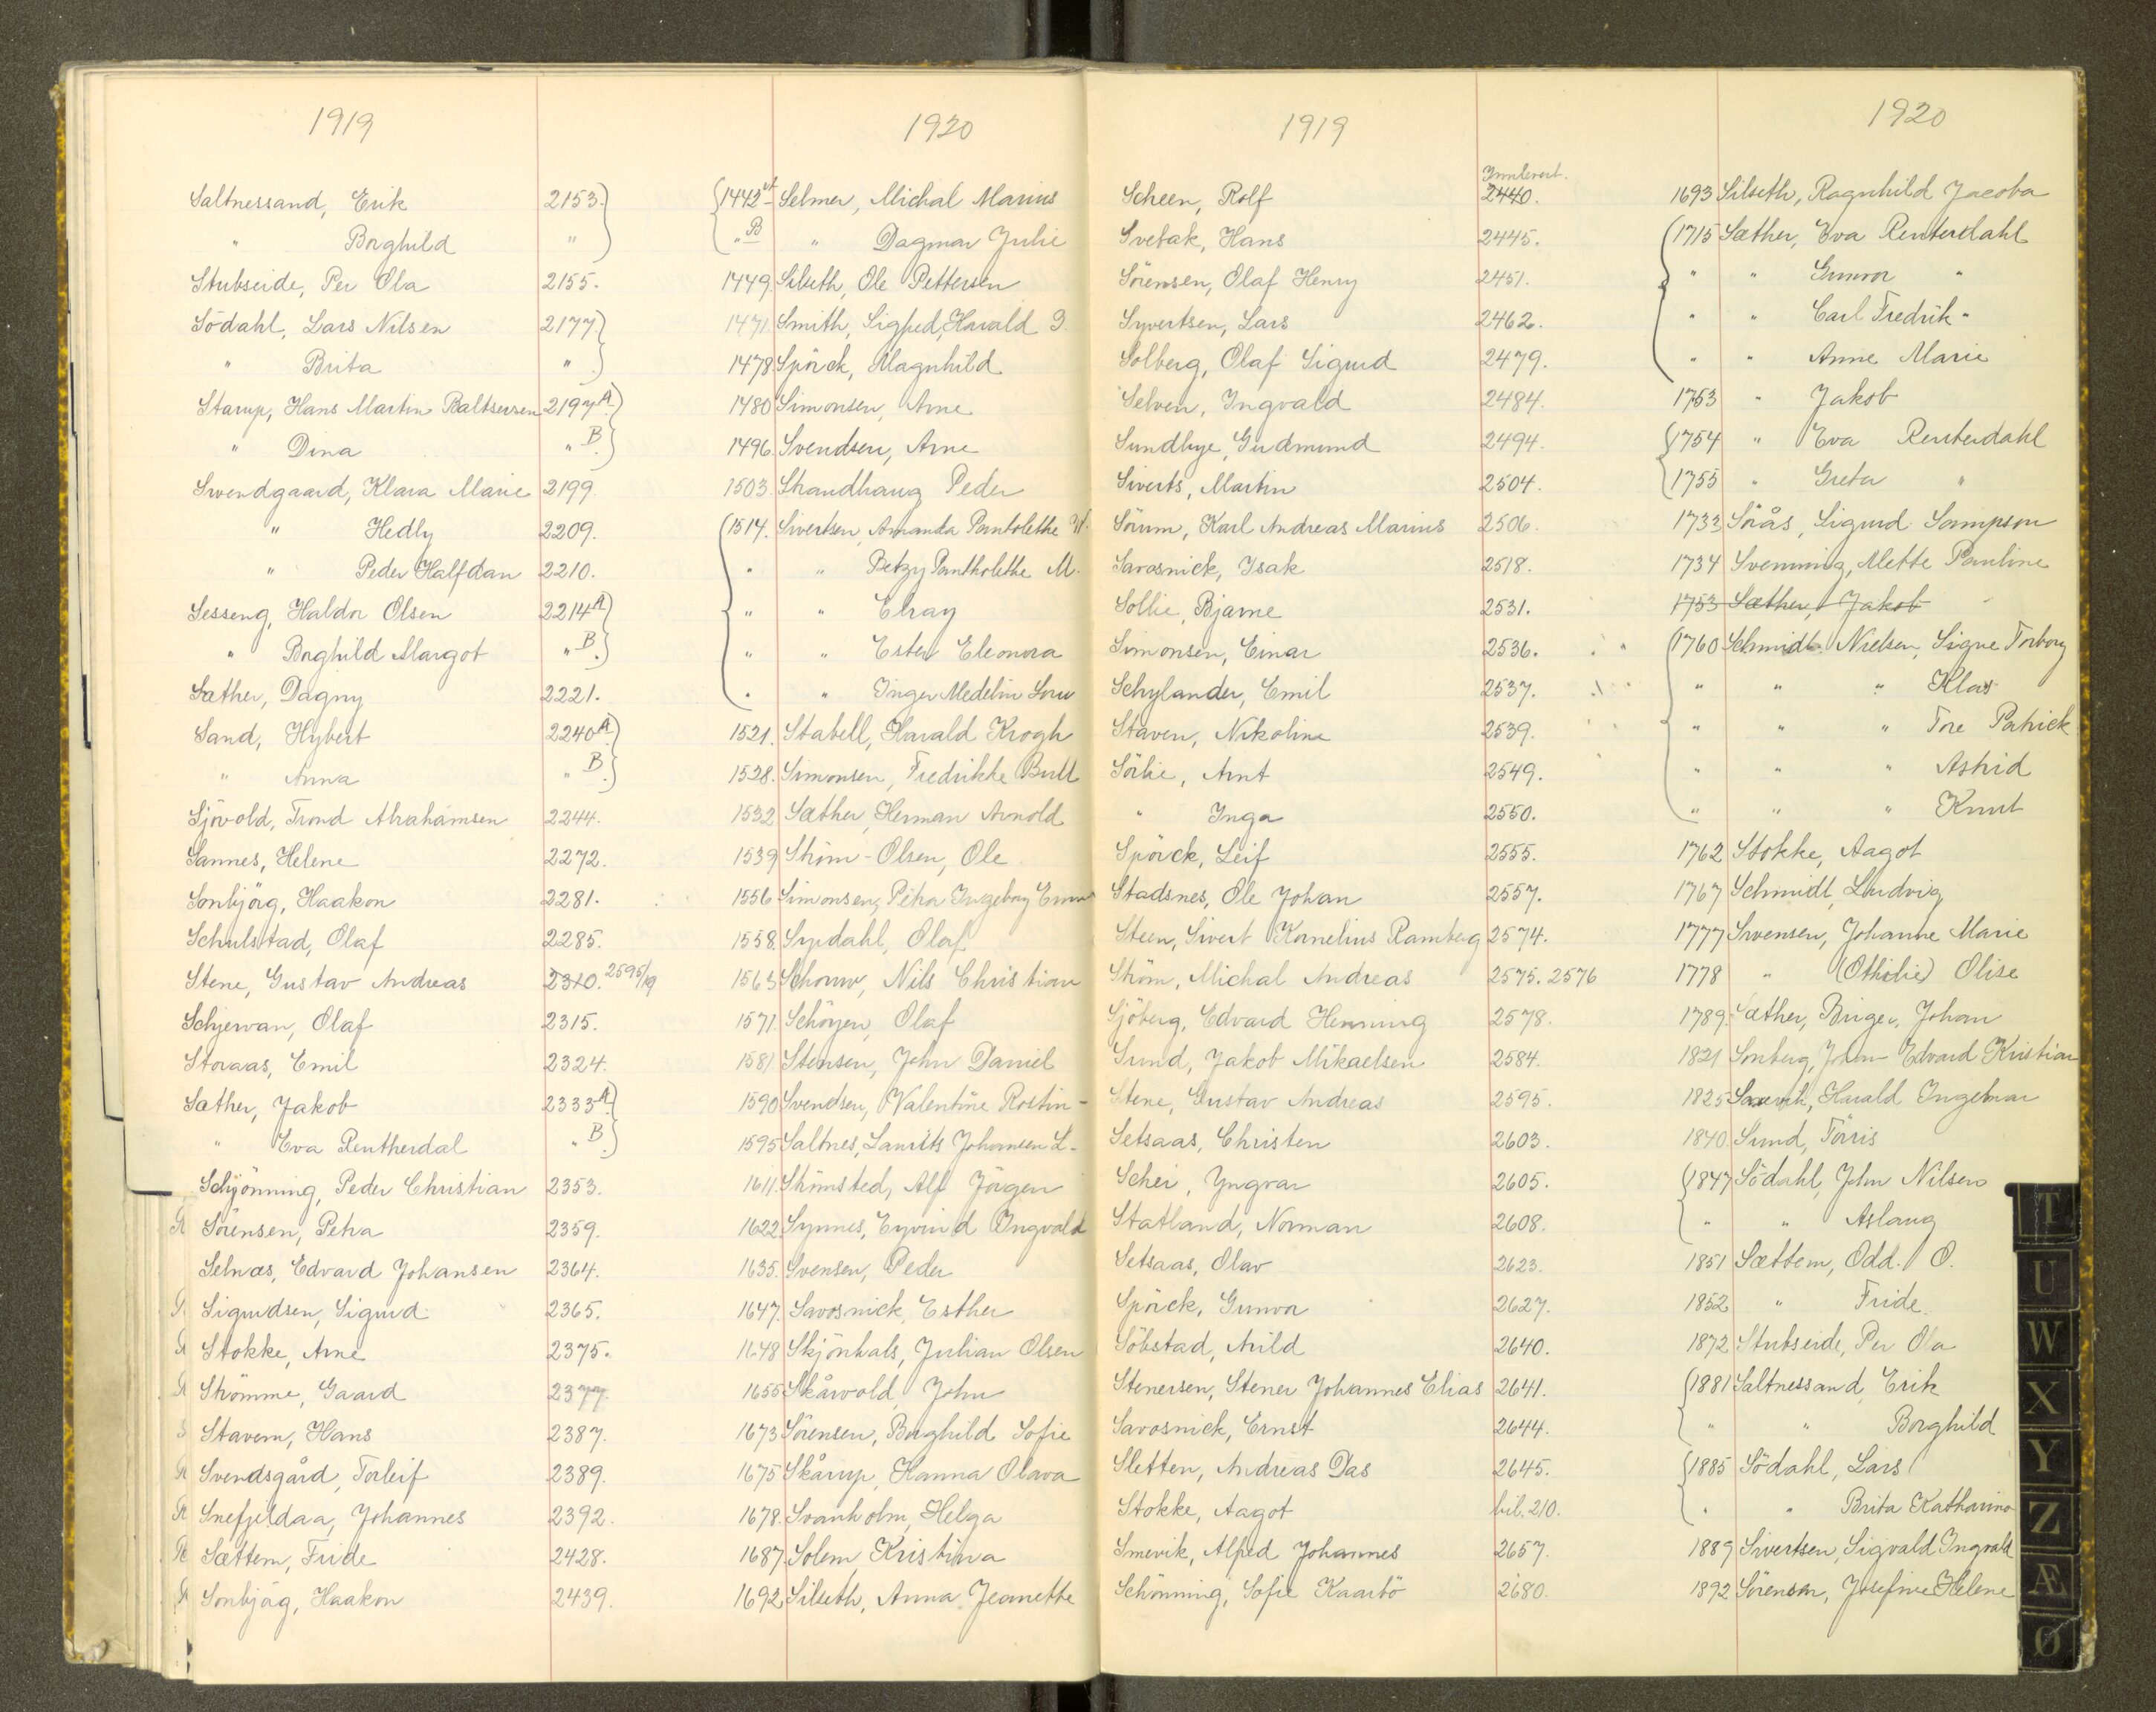 1919
Saltnessand, Erik 2153.
" Borghild "
Stubseide, Per Ola 2155.
Södahl, Lars Nilsen 2177
" Brita "
Starup, Hans Martin Baltsersen 2197 A.
" Dina " B.
Svendgaard, Klara Marie 2199.
" Hedly 2209.
" Peder Halfdan 2210.
Sesseng, Haldor Olsen 2214 A
" Borghild Margot " B.
Sæther, Dagny 2221.
Sand, Hybert 2240 A
" Anna " B.
Sjövold, Trond Abrahamsen 2244.
Sannes, Helene 2272.
Sonbjörg, Haakon 2281.
Schulstad, Olaf 2285.
Stene, Gustav Andreas 2310. 2595/19
Schjervan, Olaf 2315.
Storaas, Emil 2324.
Sæther, Jakob 2333 A
" Eva Rentherdal " B.
Schjönning, Peder Christian 2353.
Sörensen, Petra 2359.
Selnæs, Edvard Johansen 2364.
Sigurdsen, Sigurd 2365.
Stokke, Arne 2375.
Strömme, Gaard 2377.
Stavem, Hans 2387.
Svendsgård, Torleif 2389.
Snefjeldaa, Johannes 2392.
Sættem, Fride 2428.
Sonbjög, Haakon 2439.
1920
1442 Selmer, Michal Marius
" B " Dagmar Julie
1449. Silseth, Ole Pettersen
1471 Smith, Sigfred, Harald G.
1478 Spörck, Magnhild
1480 Simonsen, Arne
1496. Svendsen, Arne
1503. Strandhaug Peder
1514. Sivertsen, Amanda Pantolethe W.
" " Betzy Pantholethe M.
" " Elray
" " Ester Eleonora
" " Inger Medelin
1521. Stabell, Harald Krogh
1528. Simonsen, Fredrikke Bull
1532 Sæther, Herman Arnold
1539 Ström-Olsen, Ole
1556 Simonsen, Petra Ingeborg
1558. Syrdahl, Olaf
1563 Schouw, Nils Christian
1571. Schöyen, Olaf
1581. Stensen, John Daniel
1590 Svendsen, Valentine Rostin-
1595 Saltnes, Laurits Johansen L-
1611. Strömsted, Alf Jörgen
1622. Synnes, Eyvind Ingvald
1635. Svensen, Peder
1647. Savosnick, Esther
1648 Skjönhals, Julian Olsen
1655 Skårvold, John
1673 Sörensen, Borghild Sofie
1675 Skårup, Hanna Olava
1678. Svanholm, Helga
1687. Solem, Kristina
1692 Silseth, Anna Jeanette
1919
Innlevert.
Scheen, Rolf 2440.
Svetak, Hans 2445.
Sörensen, Olaf Henry 2451.
Syvertsen, Lars 2462.
Solberg, Olaf Sigurd 2479.
Selven, Ingvald 2484.
Sundbye, Gudmund 2494.
Siverts, Martin 2504.
Sörum, Karl Andreas Marius 2506.
Savosnick, Isak 2518.
Sollie, Bjarne 2531.
Simonsen, Einar 2536.
Schylander, Emil 2537.
Staven, Nikoline 2539.
Sörlie, Arnt 2549.
" Inga 2550.
Spörck, Leif 2555.
Stadsnes, Ole Johan 2557.
Steen, Sivert Kornelius Ramberg 2574.
Ström, Michal Andreas 2575. 2576
Sjöberg, Edvard Henning 2578.
Sund, Jakob Mikaelsen 2584.
Stene, Gustav Andreas 2595.
Setsaas, Christen 2603.
Schei, Yngvar 2605.
Statland, Norman 2608.
Setsaas, Olav 2623.
Spörck, Gunvor 2627.
Söbstad, Arild 2640.
Stenersen, Stener Johannes Elias 2641.
Savosnick, Ernst 2644.
Sletten, Andreas Das 2645.
Stokke, Aagot bil. 210.
Smevik, Alfred Johannes 2657.
Schönning, Sofie Kaarbö 2680.
1920
1693 Silseth, Ragnhild Jacoba
1715 Sæther, Eva Renterdahl
" " Gunvor "
" " Carl Fredrik "
" " Anne Marie
1753 " Jakob
1754 " Eva Renterdahl
1755 " Greta "
1733 Söås, Sigurd Sampson
1734 Svenning, Mette Pauline
1753 Sæther, Jakob
1760 Schmidt-Nielsen, Signe Torborg
" " " Klas
" " " Tore Patrick
" " " Astrid
" " " Knut
1762 Stokke, Aagot
1767 Schmidt, Ludvig
1777 Svensen, Johanne Marie
1778 " (Othilie) Olise
1789. Sæther, Birger, Johan
1821 Sonberg, Johan Edvard Kristian
1825 Harald Ingebmar
1840. Sund, Törris
1847 Södahl, John Nilsen
" " Aslaug
1851 Sættem, Odd. O.
1852 " Fride
1872 Stubseide, Per Ola
1881 Saltnessand, Erik
" " Borghild
1885 Södahl, Lars
" " Brita Katharina
1889 Sivertsen, Sigvald Ingvald
1892 Sörensen, Josefine Helene
T
U
W
X
Y
Z
Æ
Ø